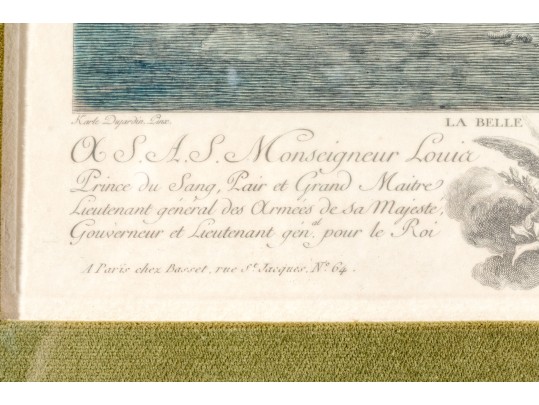 Karle Dujardin Pinx.
LA BELLE
A S. A. S. Monseigneur Louis
Prince du Sang, Pair et Grand Maitre
Lieutenant général des Armées de sa Majeste,
Gouverneur et Lieutenant gén.al pour le Roi
A Paris chez Basset, rue St. Jacques, No. 64.